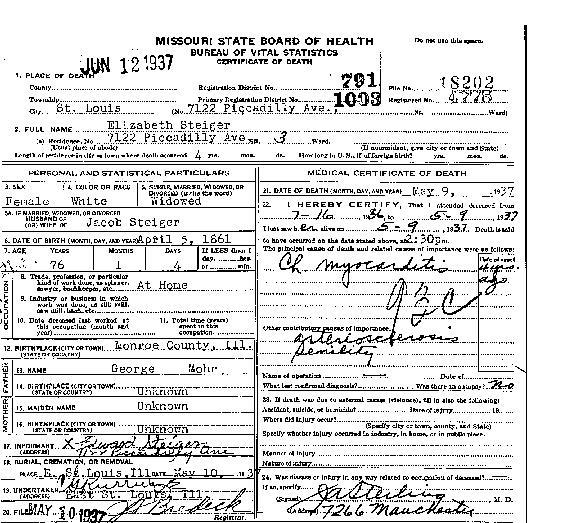 MISSOURI STATE BOARD OF HEALTH
BUREAU OF VITAL STATISTICS
CERTIFICATE OF DEATH
Do not use this space.
JUN 12 1937
1. PLACE OF DEATH
County
Registration District No. 791
File No. 18202
Township
Primary Registration District No. 1003
Registered No.
City St. Louis (No. 7122 Piccadilly Ave. St. Ward)
2. FULL NAME Elizabeth Steiger
(a) Residence, No. 7122 Piccadilly Ave. 3 Ward.
(Usual place of abode) (If nonresident, give city or town and State)
Length of residence in city or town where death occurred 4 yrs. mos. ds. How long in U. S., if of foreign birth? yrs. mos. ds.
PERSONAL AND STATISTICAL PARTICULARS
3. SEX
4. COLOR OR RACE
5. SINGLE, MARRIED, WIDOWED, OR DIVORCED (write the word)
Female White Widowed
5A. IF MARRIED, WIDOWED, OR DIVORCED
HUSBAND OF
(OR) WIFE OF Jacob Steiger
6. DATE OF BIRTH (MONTH, DAY, AND YEAR) April 5, 1861
7. AGE YEARS MONTHS DAYS If LESS than 1
day, hrs.
76 1 4 or min.
OCCUPATION
8. Trade, profession, or particular
kind of work done, as spinner,
sawyer, bookkeeper, etc. At Home
9. Industry or business in which
work was done, as silk mill,
saw mill, bank, etc.
10. Date deceased last worked at
this occupation (month and
year)
11. Total time (years)
spent in this
occupation
12. BIRTHPLACE (CITY OR TOWN) Monroe County, Ill.
(STATE OR COUNTRY)
FATHER
13. NAME George Mohr
14. BIRTHPLACE (CITY OR TOWN)
(STATE OR COUNTRY) Unknown
MOTHER
15. MAIDEN NAME Unknown
16. BIRTHPLACE (CITY OR TOWN)
(STATE OR COUNTRY) Unknown
17. INFORMANT Edward Steiger
(ADDRESS) 7122 Piccadilly Ave
18. BURIAL, CREMATION, OR REMOVAL
PLACE E. St Louis, Ill DATE May 10, 1937
19. UNDERTAKER
(ADDRESS) East St. Louis, Ill
20. FILED MAY 10 1937
Registrar.
MEDICAL CERTIFICATE OF DEATH
21. DATE OF DEATH (MONTH, DAY, AND YEAR) May 9, 1937
22. I HEREBY CERTIFY, That I attended deceased from
7-16 1936, to 5-9, 1937
I last saw h er alive on 5-9, 1937. Death is said
to have occurred on the date stated above, at 2:30 p m.
The principal cause of death and related causes of importance were as follows:
Date of onset
Ch myocarditis
92C
Other contributory causes of importance:
arteriosclerosis
senility
Name of operation Date of
What test confirmed diagnosis? Was there an autopsy? no
23. If death was due to external causes (violence), fill in also the following:
Accident, suicide, or homicide? Date of injury 19
Where did injury occur?
(Specify city or town, county, and State)
Specify whether injury occurred in industry, in home, or in public place.
Manner of injury
Nature of injury
24. Was disease or injury in any way related to occupation of deceased?
If so, specify
(Signed) Sterling M. D.
(Address) 7266 Manchester